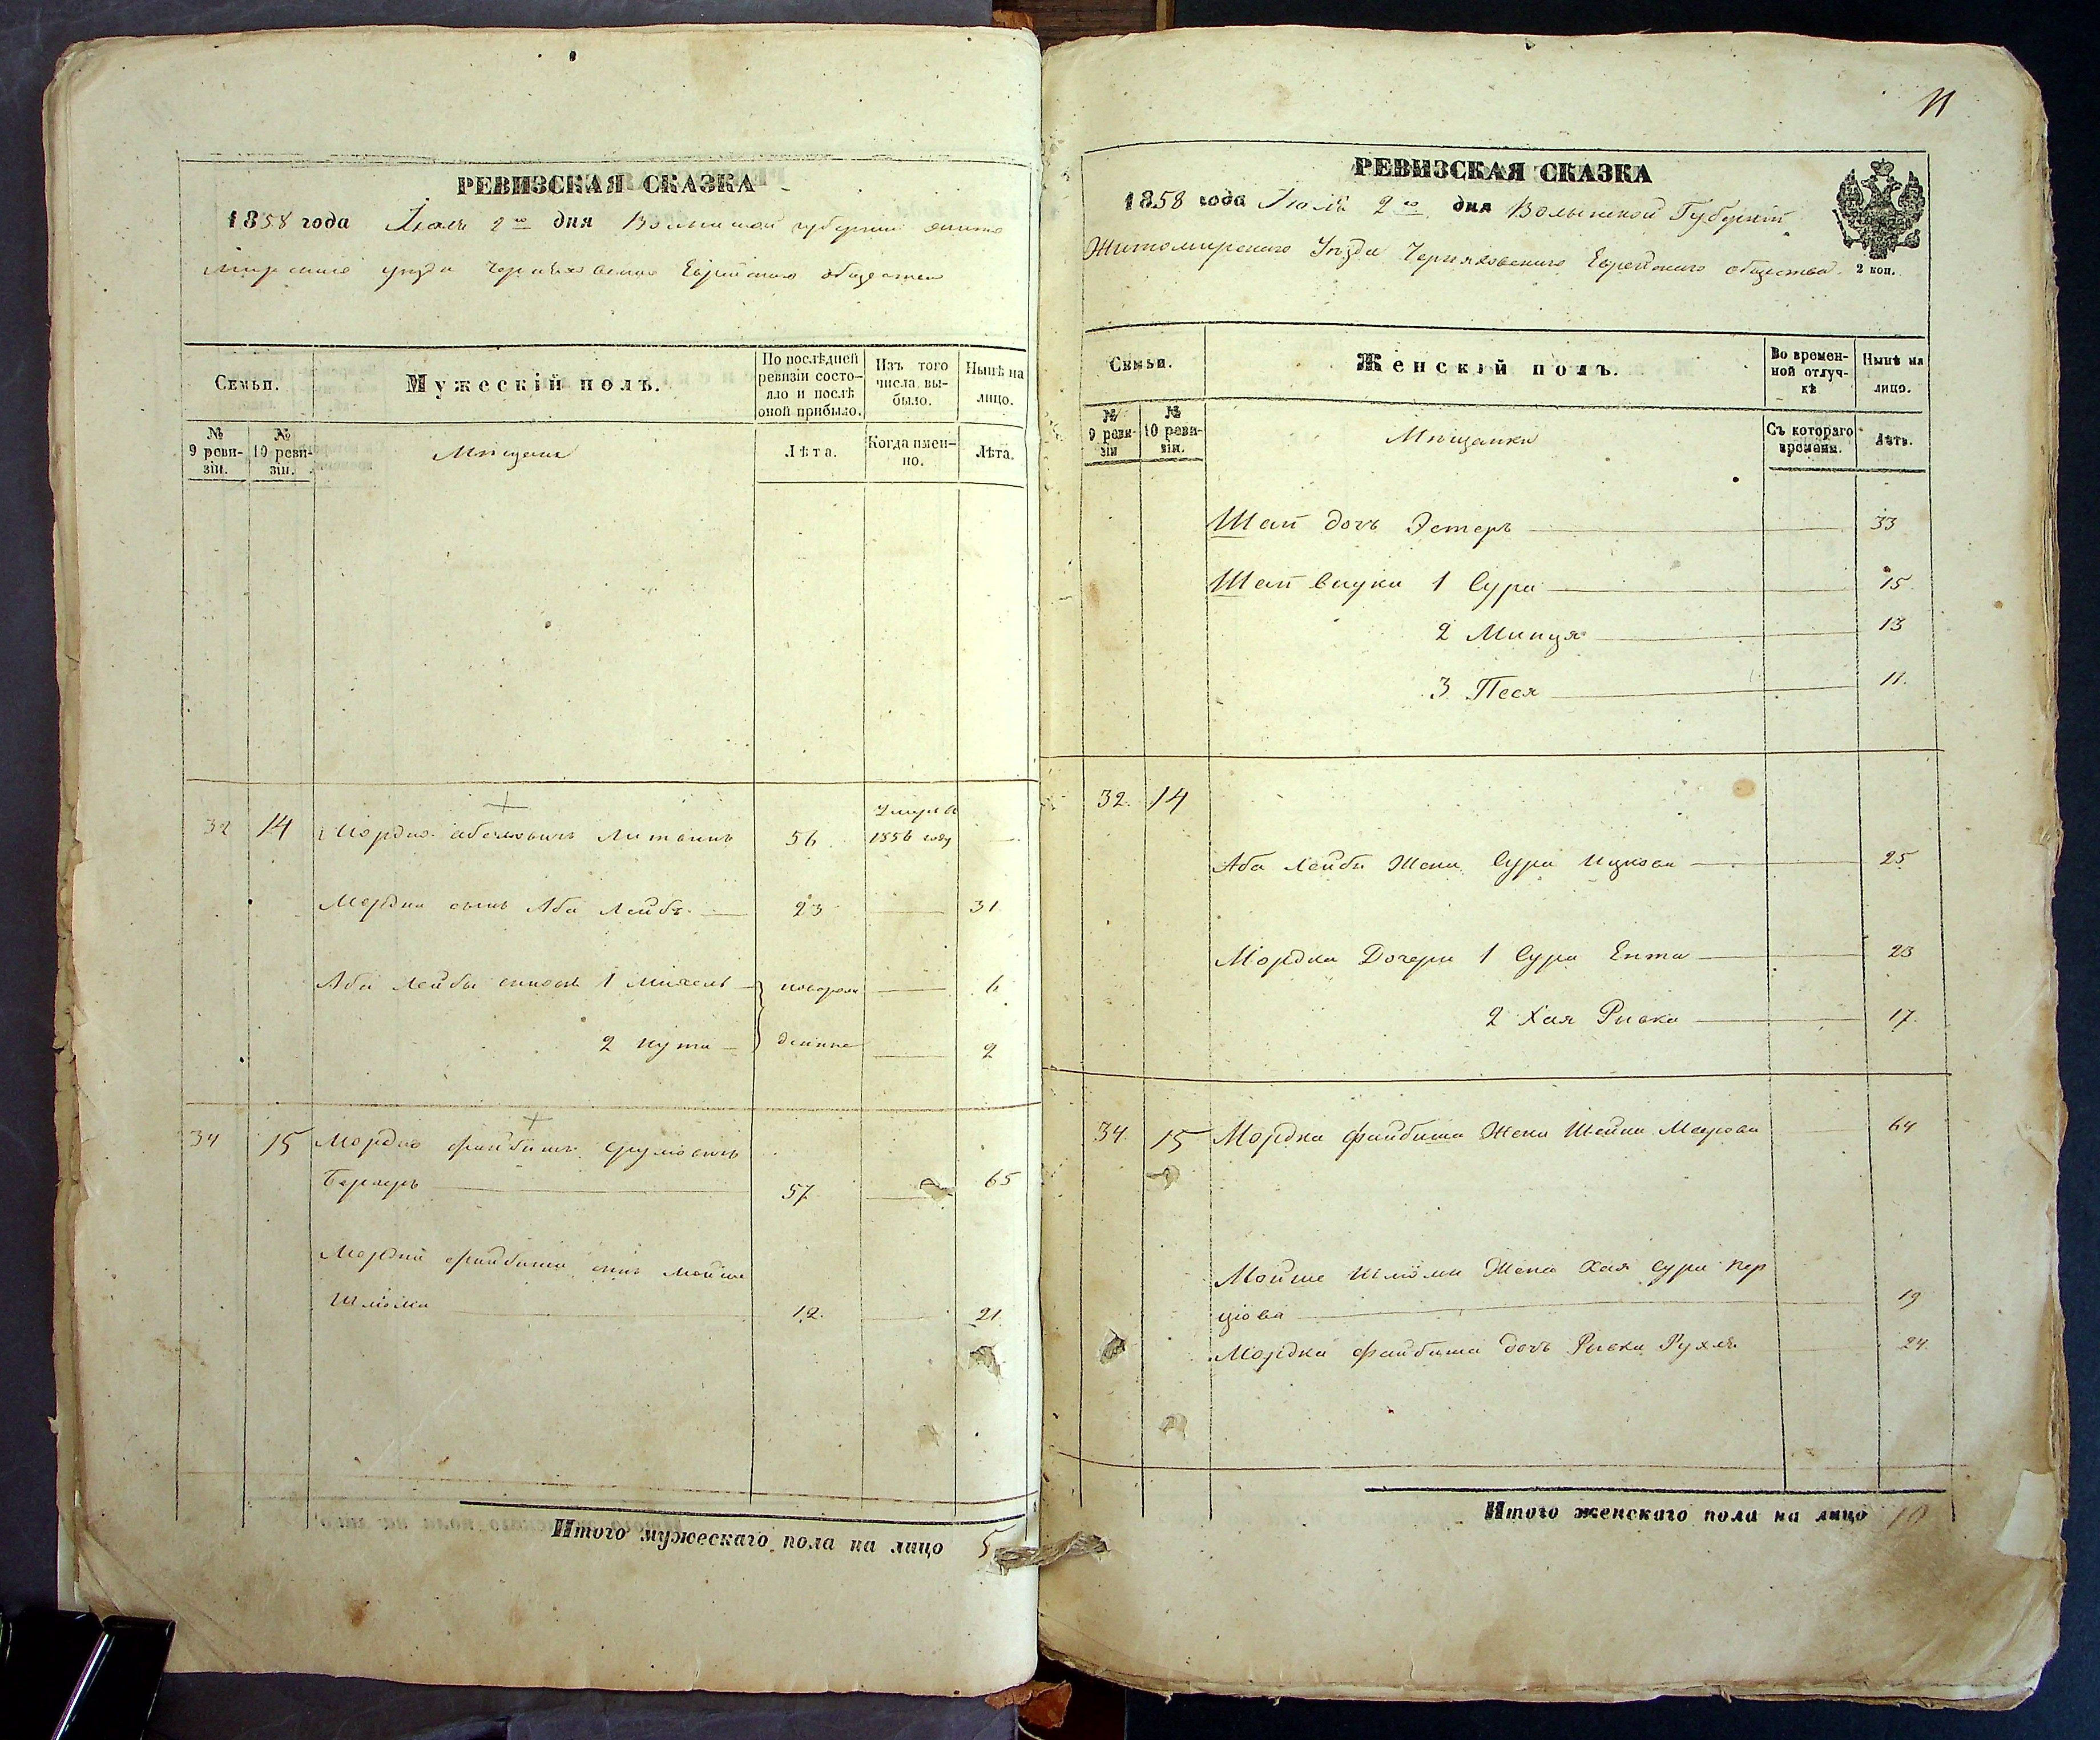 РЕВИЗСКАЯ СКАЗКА
1858 года Іюля 2го дня Волынской губерніи Жито
мирскаго уезда Черняховскаго Еврейскаго общества
Семьи.
Мужескій полъ.
По послѣдней ревизіи состояло и послѣ оной прибыло.
Изъ того числа выбыло.
Нынѣ на лицо.
№ 9 ревизіи.
№ 10 ревизіи.
Мѣщане
Лѣта.
Когда именно.
Лѣта.
32 14 Мордко Абелиовичъ Литвинъ 56 Умеръ въ 1856 году
Мордки сынъ Аба Лейбъ 23 31
Аба Лейбы сыновья 1 Михель новорож 6
2 Нута денные 2
34 15 Мордко Файбишъ Сруліовичъ
Бернеръ 57 65
Мордки Файбиша сынъ Мойше
Шліома 12. 21.
Итого мужескаго пола на лицо 5
11
РЕВИЗСКАЯ СКАЗКА
1858 года Іюля 2го дня Волынской Губерніи
Житомирскаго Уѣзда Черняховскаго Еврейскаго общества.
2 коп.
Семьи.
Женскій полъ.
Во временной отлучкѣ
Нынѣ на лицо.
№ 9 ревизіи
№ 10 ревизіи.
Мѣщанки
Съ котораго времени.
Лѣтъ.
дочь Эстеръ 33
внуки 1 Сура 15
2 Минця 13
3 Песя 11.
32. 14
Аба Лейбы Жена Сура Ицкова 25
Мордка Дочери 1 Сура Ента 23
2 Хая Ривка 17.
34. 15 Мордка Файбиша Жена Шейна Меерова 64
Мойше Шлёмы Жена Хая Сура Гер
цова 19
Мордка Файбиша дочь Ривка Рухля 24.
Итого женскаго пола на лицо 10